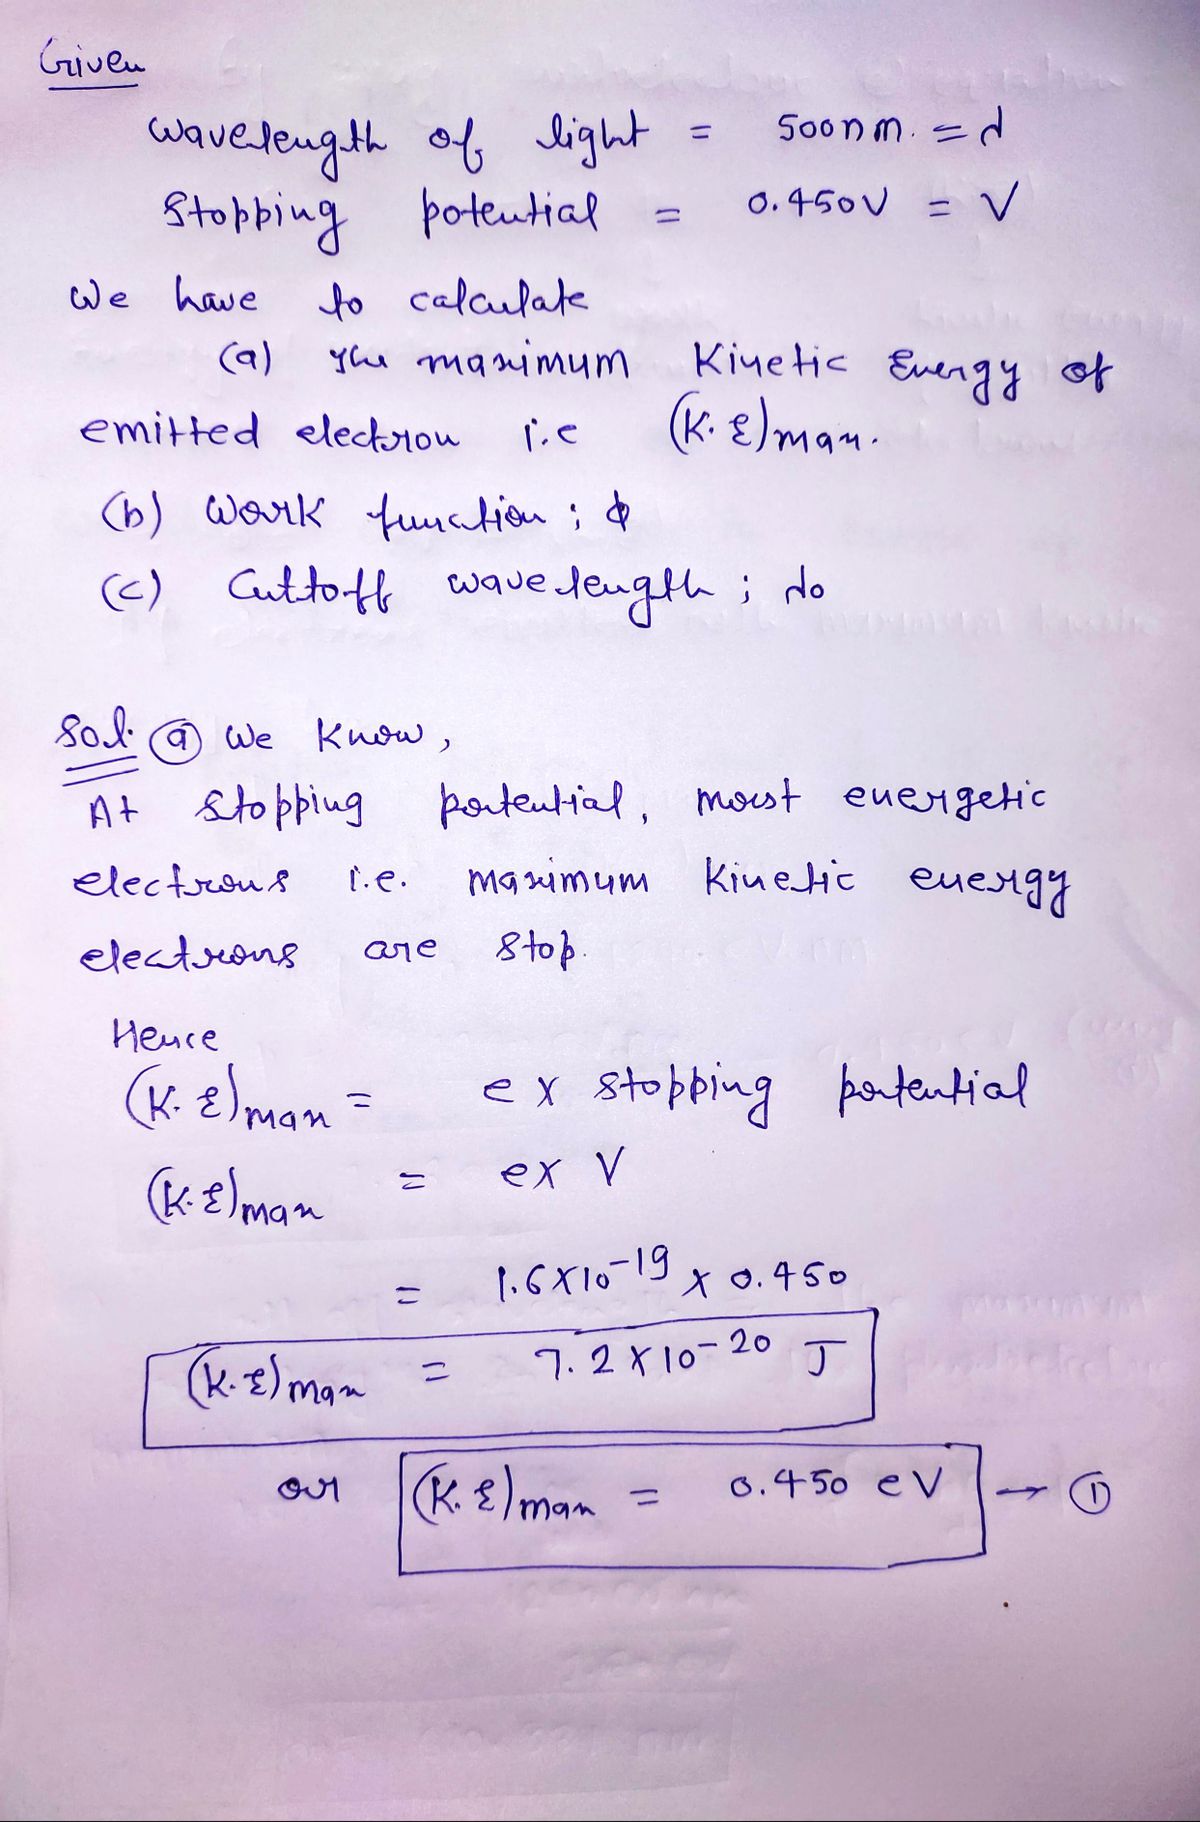 Given
Wavelength of light = 500nm. = λ
Stopping potential = 0.450V = V
We have to calculate
(a) The maximum Kinetic Energy of
emitted electron i.e (K.E)max.
(b) Work function ; ϕ
(c) Cuttoff wavelength ; λo
Sol. (a) We Know,
At stopping potential, most energetic
electrons i.e. maximum Kinetic energy
electrons are stop.
Hence
(K.E)max = e x stopping potential
(K.E)max = e x V
= 1.6 x 10^-19 x 0.450
(K.E)max = 7.2 x 10^-20 J
or (K.E)max = 0.450 eV → ①